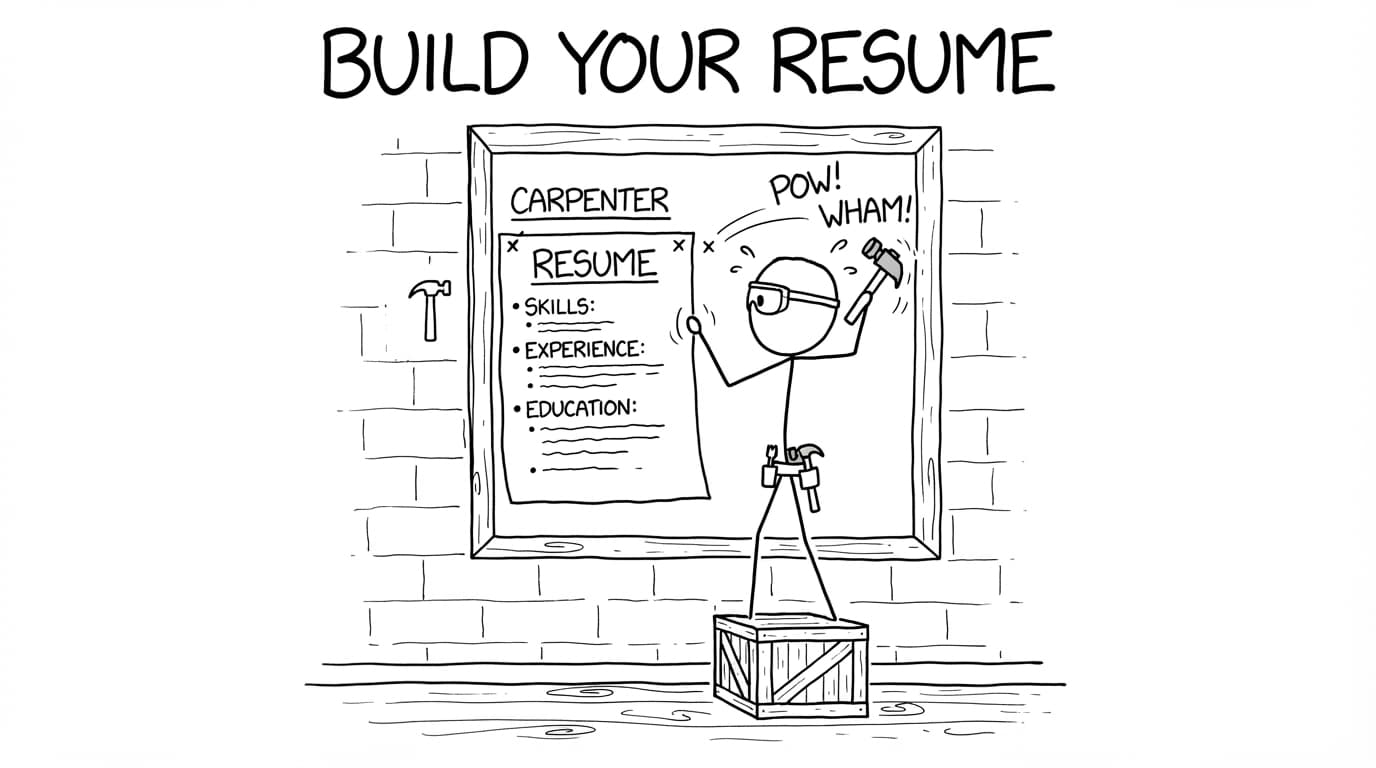 BUILD YOUR RESUME
CARPENTER
POW!
WHAM!
RESUME
• SKILLS:
• EXPERIENCE:
• EDUCATION: